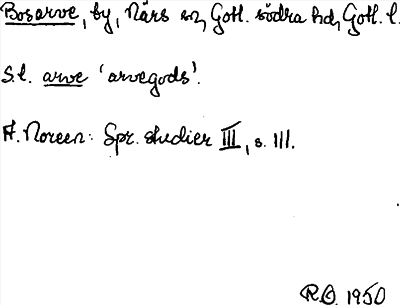 Bosarve, by, Närs sn, Gotl. södra hd, Gotl. l.
S.l. arve 'arvegods'.
A. Noreen: Spr. studier III, s. 111.
R.O. 1950